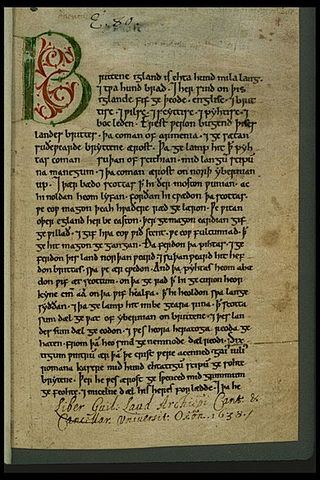 E. 80.
Brittene igland is ehta hund mila lang.
⁊ twa hund brad. ⁊ her sind on þis
iglande fif geþeode. englisc. ⁊ brit
tisc. ⁊ wilsc. ⁊ scyttisc. ⁊ pyhtisc. ⁊
boc leden. Erest weron bugend þises
landes brittes. þa coman of armenia. ⁊ gesætan
suðewearde bryttene ærost. Þa gelamp hit ꝥ pyh
tas coman suþan of scithian. mid langū scipū
na manegum. ⁊ þa coman ærost on norþ ybernian
up. ⁊ þær bædo scottas ꝥ hi ðer moston wunian. ac
hi noldan heom lyfan. forðan hi cwædon þa scottas.
we eow magon þeah hwaðere ræd gelæron. We witan
oþer egland her be easton. þer ge magon eardian gif
ge willað. ⁊ gif hwa eow wið stent. we eow fultumiað. ꝥ
ge hit magon gegangan. Ða ferdon þa pihtas. ⁊ ge
ferdon þis land norþanweard. ⁊ suþanweard hit hef
don brittas. swa we ær cwedon. And þa pyhtas heom abæ
don wif æt scottum. on þa gerad ꝥ hi gecuron heora
kyne cinn aa on þa wif healfa. ꝥ hi heoldon swa lange
syððan. ⁊ þa gelamp hit imbe geara rina. ꝥ scotta
sum dæl gewat of ybernian on brittene. ⁊ þes lan
des sum dæl geeodon. ⁊ wes heora heratoga reoda ge
haten. from þā heo sind genemnode dæl reodi. Six
tigum wintrū ær þā þe crist were acenned. gaius iulius
romana kasere mid hund ehtatigū scipū gesohte
brytene. Þer he wes ærost geswenced mid grimmum
gefeohte. ⁊ micelne dæl his heres forlædde. ⁊ þa he
Liber Guil. Laud Archiepi Cant. &
Cancellar. Universit. Oxon. 1638.